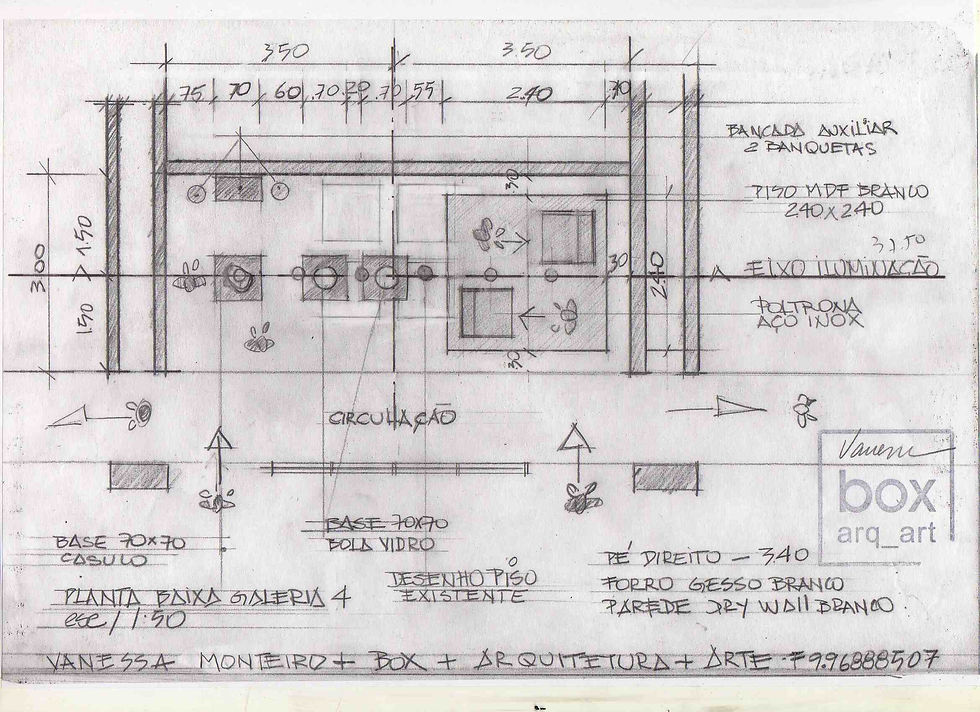 350
3.50
75 70 60 .70 20 .70 .55 2.40 .30
BANCADA AUXILIAR
2 BANQUETAS
PISO MDF BRANCO
240X240
.30
3.00
1.50
1.50
.30
2.40
EIXO ILUMINAÇÃO
POLTRONA
AÇO INOX
.30
CIRCULAÇÃO
Vanessa
box
arq_art
BASE 70X70
CASULO
BASE 70X70
BOLA VIDRO
DESENHO PISO
EXISTENTE
PÉ DIREITO – 3.40
FORRO GESSO BRANCO
PAREDE DRY WALL BRANCO
PLANTA BAIXA GALERIA 4
esc/1:50
VANESSA MONTEIRO + BOX + ARQUITETURA + ARTE · F 9.96888507